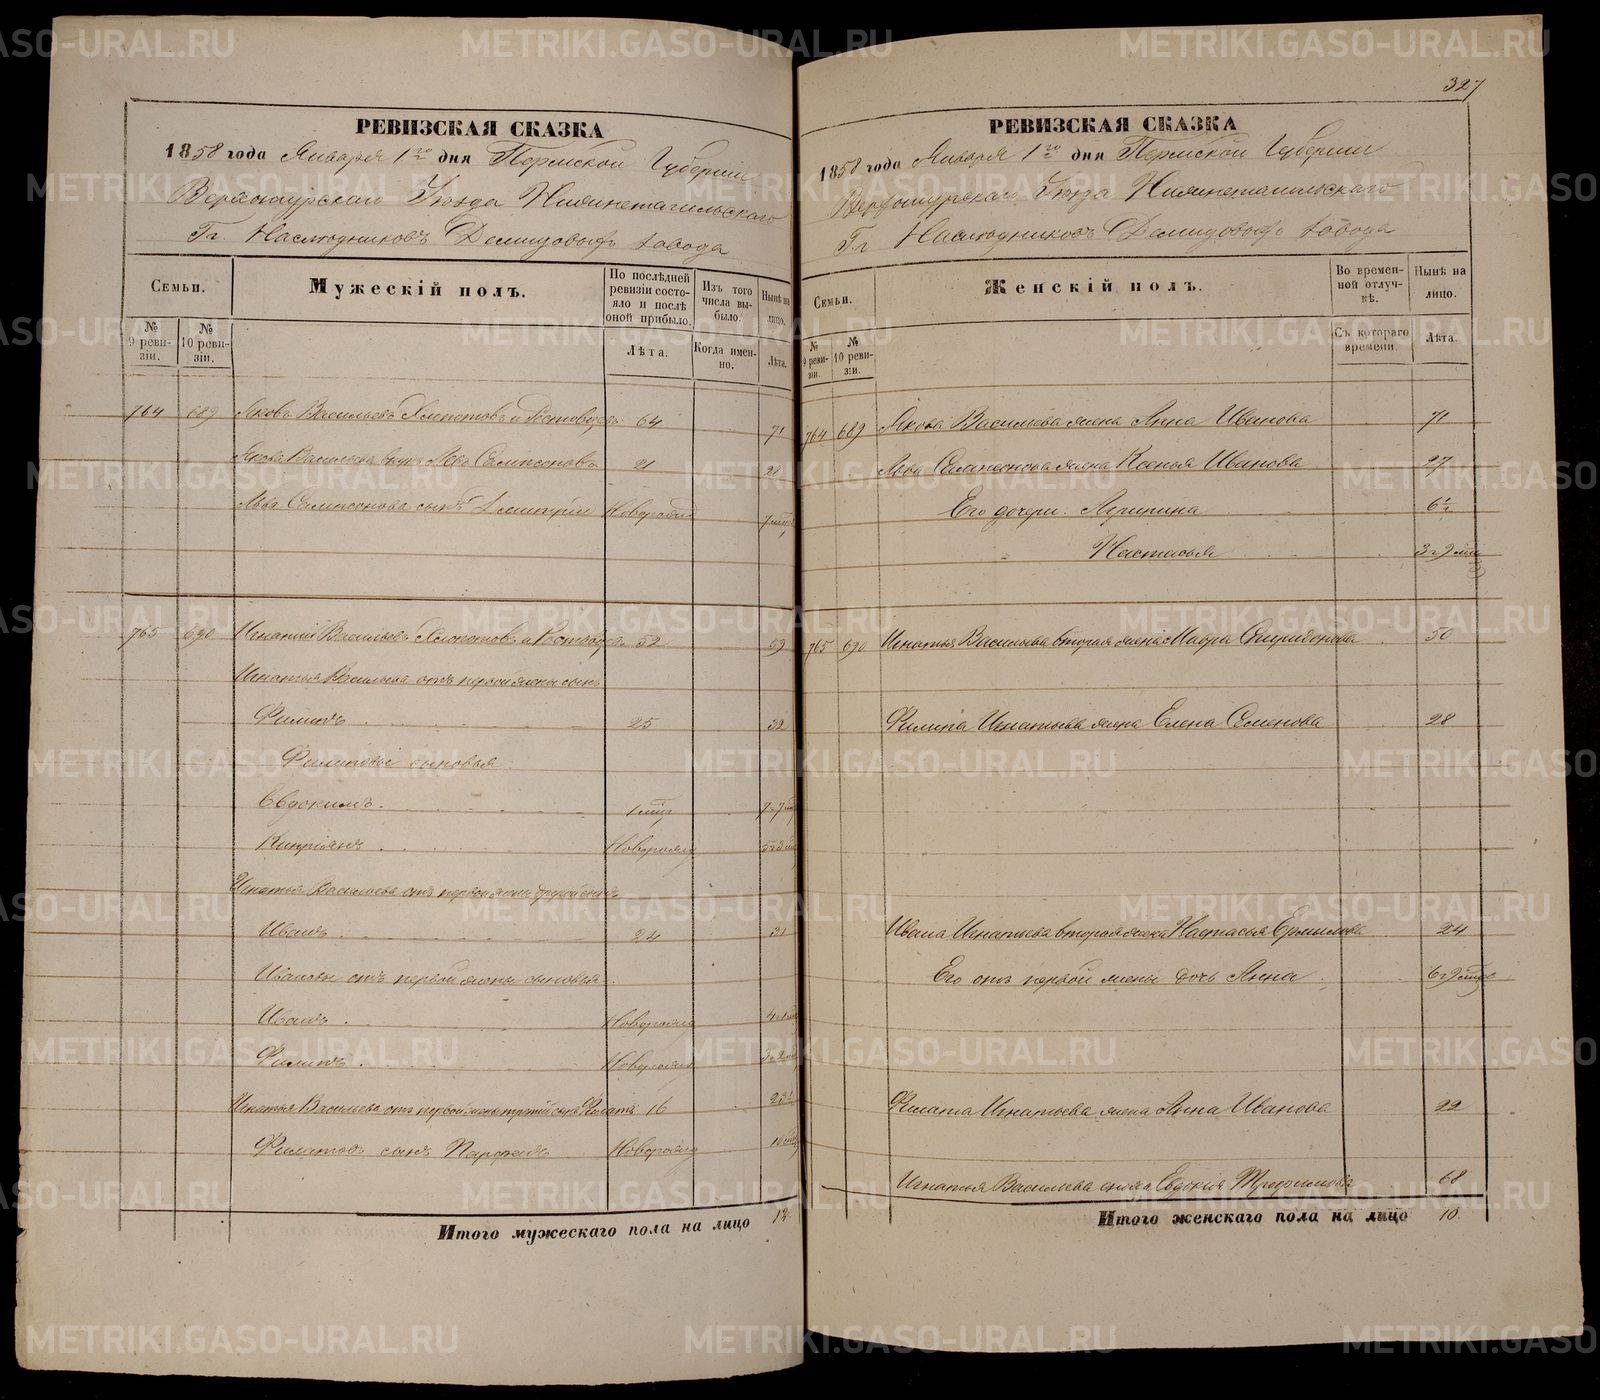 327
РЕВИЗСКАЯ СКАЗКА
1858 года Января 1го дня Пермской Губернии
Верхотурского Уѣзда Нижнетагильского
Гг. Наслѣдниковъ Демидовыхъ завода
Семьи.
№ 9 ревизіи.
№ 10 ревизіи.
Мужескій полъ.
По послѣдней ревизіи состояло и послѣ оной прибыло.
Лѣта.
Изъ того числа выбыло.
Когда именно.
Нынѣ на лицо.
Лѣта.
764 689 Яковъ Васильевъ 64 71
Якова Васильева внукъ Левъ Сампсоновъ 21 28
Льва Сампсонова сынъ Дмитрій Новорожд
765 690 Игнатій Васильевъ 52 59
Игнатья Васильева отъ первой жены сынъ
Филипъ 25 32
Филиповы сыновья
Евдокимъ
Кипріянъ Новорожд
Игнатья Васильева отъ первой жены другой сынъ
Иванъ 24 31
Ивановы отъ первой жены сыновья
Иванъ Новорожд
Филипъ Новорожд
Игнатья Васильева отъ первой жены третій сынъ Филатъ 16 23
Филатовъ сынъ Новорожд
Итого мужескаго пола на лицо 12
РЕВИЗСКАЯ СКАЗКА
1858 года Января 1го дня Пермской Губернии
Верхотурского Уѣзда Нижнетагильского
Гг Наслѣдниковъ Демидовыхъ завода
Семьи.
№ 9 ревизіи.
№ 10 ревизіи.
Женскій полъ.
Во временной отлучкѣ.
Съ котораго времени.
Нынѣ на лицо.
Лѣта.
764 689 Якова Васильева жена Анна Иванова 71
Льва Сампсонова жена Ксенья Иванова 27
Его дочери. Агрипина
Настасья
765 690 Игнатья Васильева вторая жена Мавра Спиридонова 50
Филипа Игнатьева жена Елена Семенова 28
Ивана Игнатьева вторая жена Настасья Ермилова 24
Его отъ первой жены дочь Анна
Филата Игнатьева жена Анна Иванова 22
Игнатья Васильева Евдокія Трофимова 68
Итого женскаго пола на лицо 10.
METRIKI.GASO-URAL.RU